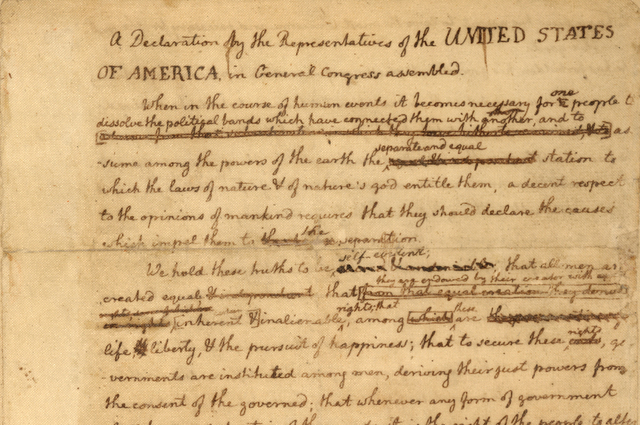 A Declaration by the Representatives of the UNITED STATES
OF AMERICA, in General Congress assembled.
When in the course of human events it becomes necessary for one people to
dissolve the political bands which have connected them with another, and to
as
separate and equal
-sume among the powers of the earth the station to
which the laws of nature & of nature's god entitle them, a decent respect
to the opinions of mankind requires that they should declare the causes
the
which impel them to separation.
self-evident;
We hold these truths to be that all men are
they are endowed by their creator with
created equal & independent that from that equal creation they derive
rights; that
inherent & inalienable among which these are
life & liberty, & the pursuit of happiness; that to secure these rights, go
-vernments are instituted among men, deriving their just powers from
the consent of the governed; that whenever any form of government
it is the right of the people to alter